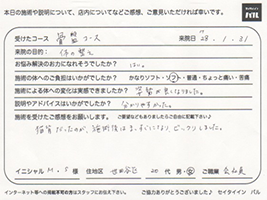 本日の施術や説明について、店内についてなどご感想、ご意見いただければ幸いです。 バル
受けたコース 骨盤コース 来院日 H28.1.31
来院の目的: 体の整え
お悩み解決のお力になれそうでしたか? はい。
施術の体への負担はいかがでしたか? かなりソフト・ソフト・普通・ちょっと痛い・苦痛
施術による体への変化は実感できましたか? 骨盤が良くなりました。
説明やアドバイスはいかがでしたか? 分かりやすかった。
施術を受けたご感想をお願いします。 ご要望などもありましたらご自由に記載下さい
猫背だったが、施術後はまっすぐになりびっくりしました。
イニシャル M.S 様 住地区 世田谷区 20代 男・女 ご職業 会社員
インターネット等への掲載不可の方はスタッフにお伝え下さい。 ご協力ありがとうございました♪ セイタイイン バル